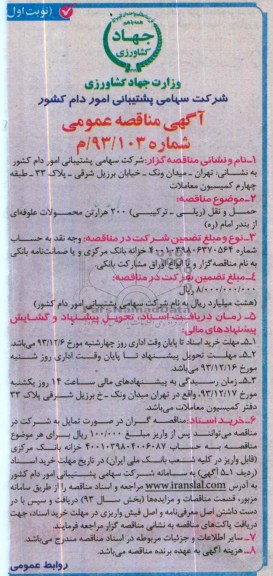 (نوبت اول)
جهاد
کشاورزی
وزارت جهاد کشاورزی
شرکت سهامی پشتیبانی امور دام کشور
آگهی مناقصه عمومی
شماره ۹۳/۱۰۳/م
۱ـ نام و نشانی مناقصه گزار: شرکت سهامی پشتیبانی امور دام کشور
به نشانی: تهران - میدان ونک - خیابان برزیل شرقی - پلاک ۳۳ - طبقه
چهارم کمیسیون معاملات
۲ـ موضوع مناقصه:
حمل و نقل (ریلی - ترکیبی) ۲۰۰ هزارتن محصولات علوفه‌ای
از بندر امام (ره)
۳ـ نوع و مبلغ تضمین شرکت در مناقصه: وجه نقد به حساب
شماره خزانه بانک مرکزی و یا ضمانت‌نامه بانکی
به نام مناقصه‌گزار و یا انواع اوراق مشارکت بانکی
۴ـ مبلغ تضمین شرکت در مناقصه:
۸/۰۰۰/۰۰۰/۰۰۰ ریال
(هشت میلیارد ریال به نام شرکت سهامی پشتیبانی امور دام کشور)
۵ـ زمان دریافت اسناد، تحویل پیشنهاد و گشایش
پیشنهادهای مالی:
۵ـ۱ـ مهلت خرید اسناد تا پایان وقت اداری روز چهارشنبه مورخ ۹۳/۱۲/۶ می‌باشد.
۵ـ۲ـ مهلت تحویل پیشنهاد تا پایان وقت اداری روز شنبه
مورخ ۹۳/۱۲/۱۶ می‌باشد.
۵ـ۳ـ زمان رسیدگی به پیشنهادهای مالی ساعت ۱۴ روز یکشنبه
مورخ ۹۳/۱۲/۱۷ واقع در تهران میدان ونک - خ برزیل شرقی پلاک ۳۳
دفتر کمیسیون معاملات می‌باشد.
۶ـ خرید اسناد: مناقصه گران در صورت تمایل به شرکت در
مناقصه می‌توانند پس از واریز مبلغ ۱۰۰/۰۰۰ ریال برای هر موضوع
مناقصه به حساب شماره خزانه بانک مرکزی
(قابل واریز در کلیه شعب بانک ملی ایران) در تاریخ مهلت خرید اسناد
(ردیف ۵ـ۱ آگهی) به سامانه شرکت سهامی پشتیبانی امور دام کشور
به آدرس www.iranslal.com مراجعه و اسناد مناقصه را از طریق سامانه
مزبور، قسمت مناقصات و مزایده‌ها (بخش سال ۹۳) دریافت و سپس با در
دست داشتن اصل معرفی‌نامه و اصل فیش واریزی در مهلت خرید اسناد، جهت
دریافت پاکت‌های مناقصه به نشانی مناقصه گزار مراجعه فرمایند.
۷ـ سایر اطلاعات و جزئیات مربوطه در اسناد مناقصه مندرج می‌باشد.
۸ـ هزینه آگهی به عهده برنده مناقصه می‌باشد.
روابط عمومی